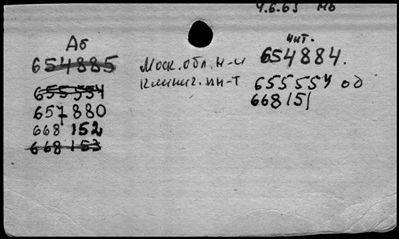 4.6.63 Мб
Аб
654885
655554
657880
668152
668153
Моск. обл. н-и
клинич. ин-т
чит.
654884.
655557 од
668151